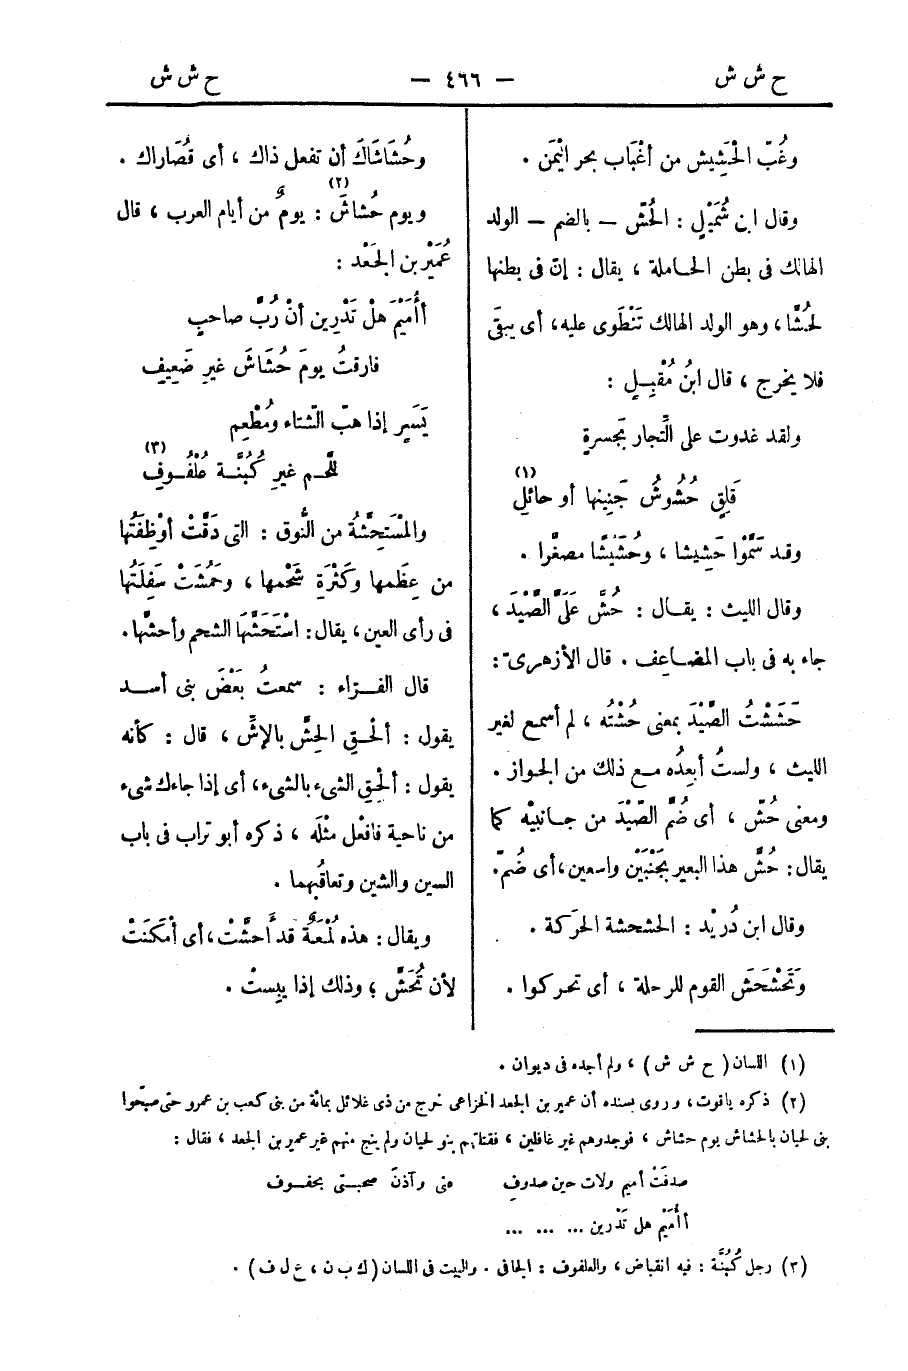 ح ش ش
— ٤٦٦ —
ح ش ش
وغُبّ الحَشِيش من أغْبَاب بحر اليَمَن .
وقال ابن شُمَيْلٍ : الحُشّ — بالضم — الولد
الهالك فى بطن الحاملة ، يقال : إنّ فى بطنها
لحُشًّا ، وهو الولد الهالك تَنْطَوى عليه، أى يبقَى
فلا يخرج ، قال ابنُ مُقْبِلٍ :
ولقد غدوت على التِّجار بجَسرةٍ
قَلِقٍ حُشُوشُ جَنِينها أو حائلِ (١)
وقد سَمَّوْا حَشِيشا ، وحُشَيْشًا مصغَّرا .
وقال الليث : يقال : حُشَّ عَلَىَّ الصَّيْدَ ،
جاء به فى باب المضاعف . قال الأزهرىّ :
حَشَشْتُ الصَّيْدَ بمعنى حُشْتُه ، لم أسمع لغير
الليث ، ولستُ أبعِدُه مع ذلك من الجواز .
ومعنى حُشّ ، أى ضُمَّ الصَّيْدَ من جانبيْه كما
يقال: حُشَّ هذا البعير بجَنْبَيْن واسعين، أى ضُمّ.
وقال ابن دُرَيْد : الحشحشة الحركة .
وتَحَشْحَشَ القوم للرحلة ، أى تحركوا .
وحُشَاشَاكَ أن تفعل ذاك ، أى قُصَاراك .
ويوم حُشاشَ (٢) : يومٌ من أيام العرب ، قال
عُمَيْر بن الجَعْد :
أأُمَيْمَ هلْ تَدْرِين أنْ رُبَّ صاحبٍ
فارقتُ يومَ حُشَاشَ غيرِ ضَعِيفِ
يَسَرٍ إذا هبّ الشتاء ومُطْعِمٍ
للَّحم غيرِ كُبُنَّة عُلْفُوفِ (٣)
والمُسْتَحِشَّةُ من النُّوق : التى دَقَّتْ أوْظِفَتُها
من عِظَمها وكَثْرَةِ شَحْمها ، وحَمُشَتْ سَفِلَتُها
فى رأى العين ، يقال: اسْتَحَشَّها الشحم وأحشَّها.
قال الفرّاء : سمعتُ بَعْضَ بنى أسد
يقول : ألْحِقِ الحِشَّ بالإشِّ ، قال : كأنه
يقول : ألحِقِ الشىء بالشىء، أى إذا جاءك شىء
من ناحية فافعْل مثْلَه ، ذكره أبو تراب فى باب
السين والشين وتعاقُبهما .
ويقال : هذه لُمْعَةٌ قد أَحشَّتْ، أى أمْكَنَتْ
لأن تُحَشَّ ؛ وذلك إذا يبِستْ .
(١) اللسان ( ح ش ش ) ، ولم أجده فى ديوان .
(٢) ذكره ياقوت، وروى بسنده أن عمير بن الجعد الخزاعى خرج من ذى غلائل بمائة من بنى كعب بن عمرو حتى صبّحوا
بنى لحيان بالحشاش يوم حشاش ، فوجدوهم غير غافلين ، فقتلتهم بنو لحيان ولم ينج منهم غير عمير بن الجعد ، فقال :
صدفَتْ أميم ولات حين صدوفِ منى وآذنَ صحبتى بحفوف
أأُمَيْم هل تَدْرين ... ... ...
(٣) رجل كُبُنَّة : فيه انقباض، والعلفوف : الجافى . والبيت فى اللسان (ك ب ن ، ع ل ف) .